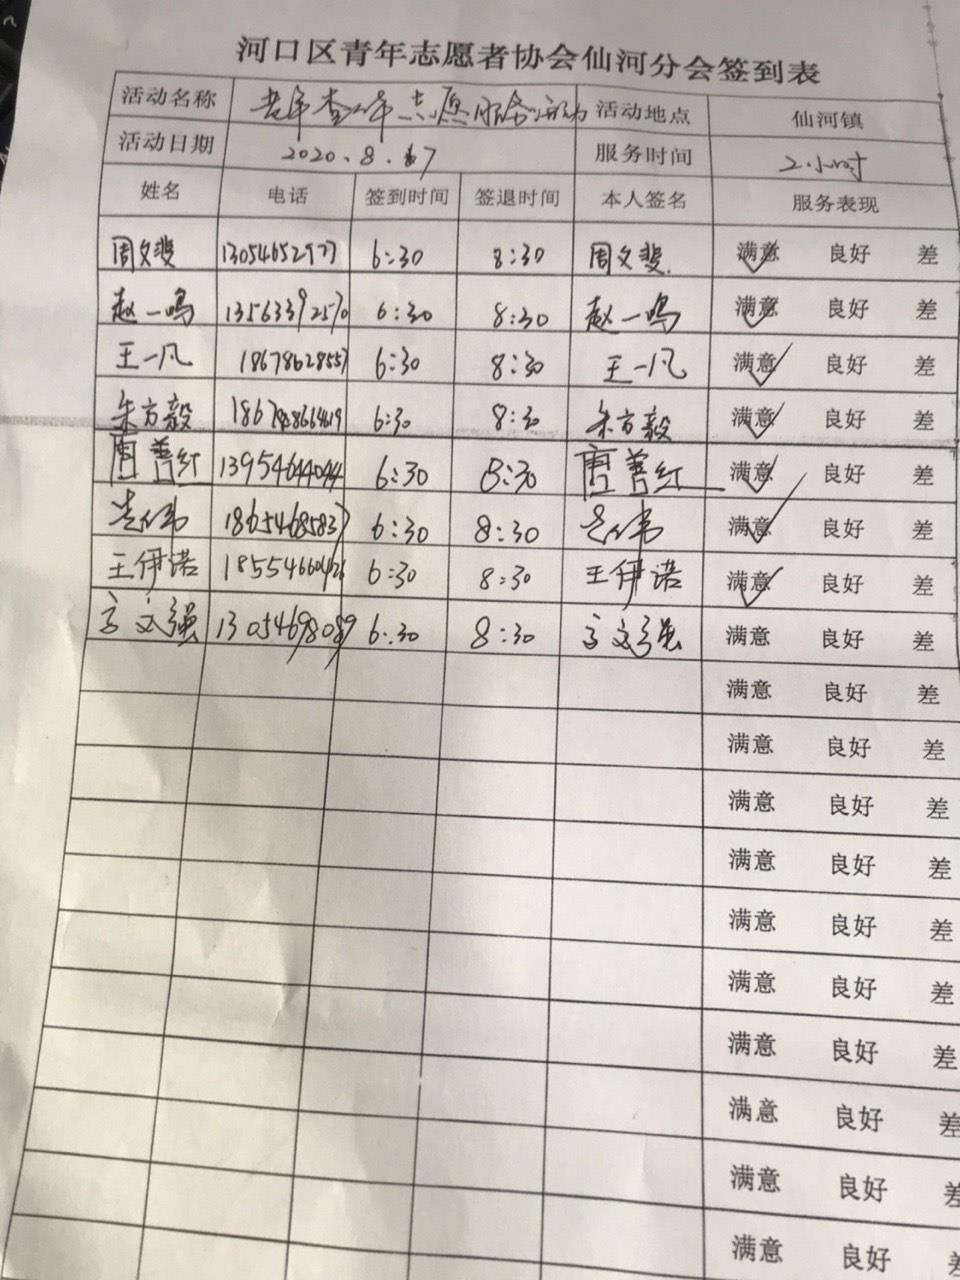 河口区青年志愿者协会仙河分会签到表
活动名称 志愿服务活动 活动地点 仙河镇
活动日期 2020.8.17 服务时间 2小时
姓名 电话 签到时间 签退时间 本人签名 服务表现
周文斐 13054652977 6:30 8:30 周文斐 满意 良好 差
赵一鸣 13563392570 6:30 8:30 赵一鸣 满意 良好 差
王一凡 18678628557 6:30 8:30 王一凡 满意 良好 差
朱方毅 6:30 8:30 朱方毅 满意 良好 差
唐善红 13954644044 6:30 8:30 唐善红 满意 良好 差
18654685837 6:30 8:30 满意 良好 差
王伊诺 6:30 8:30 王伊诺 满意 良好 差
高文强 13054698089 6:30 8:30 高文强 满意 良好 差
满意 良好 差
满意 良好 差
满意 良好 差
满意 良好 差
满意 良好 差
满意 良好 差
满意 良好 差
满意 良好 差
满意 良好 差
满意 良好 差